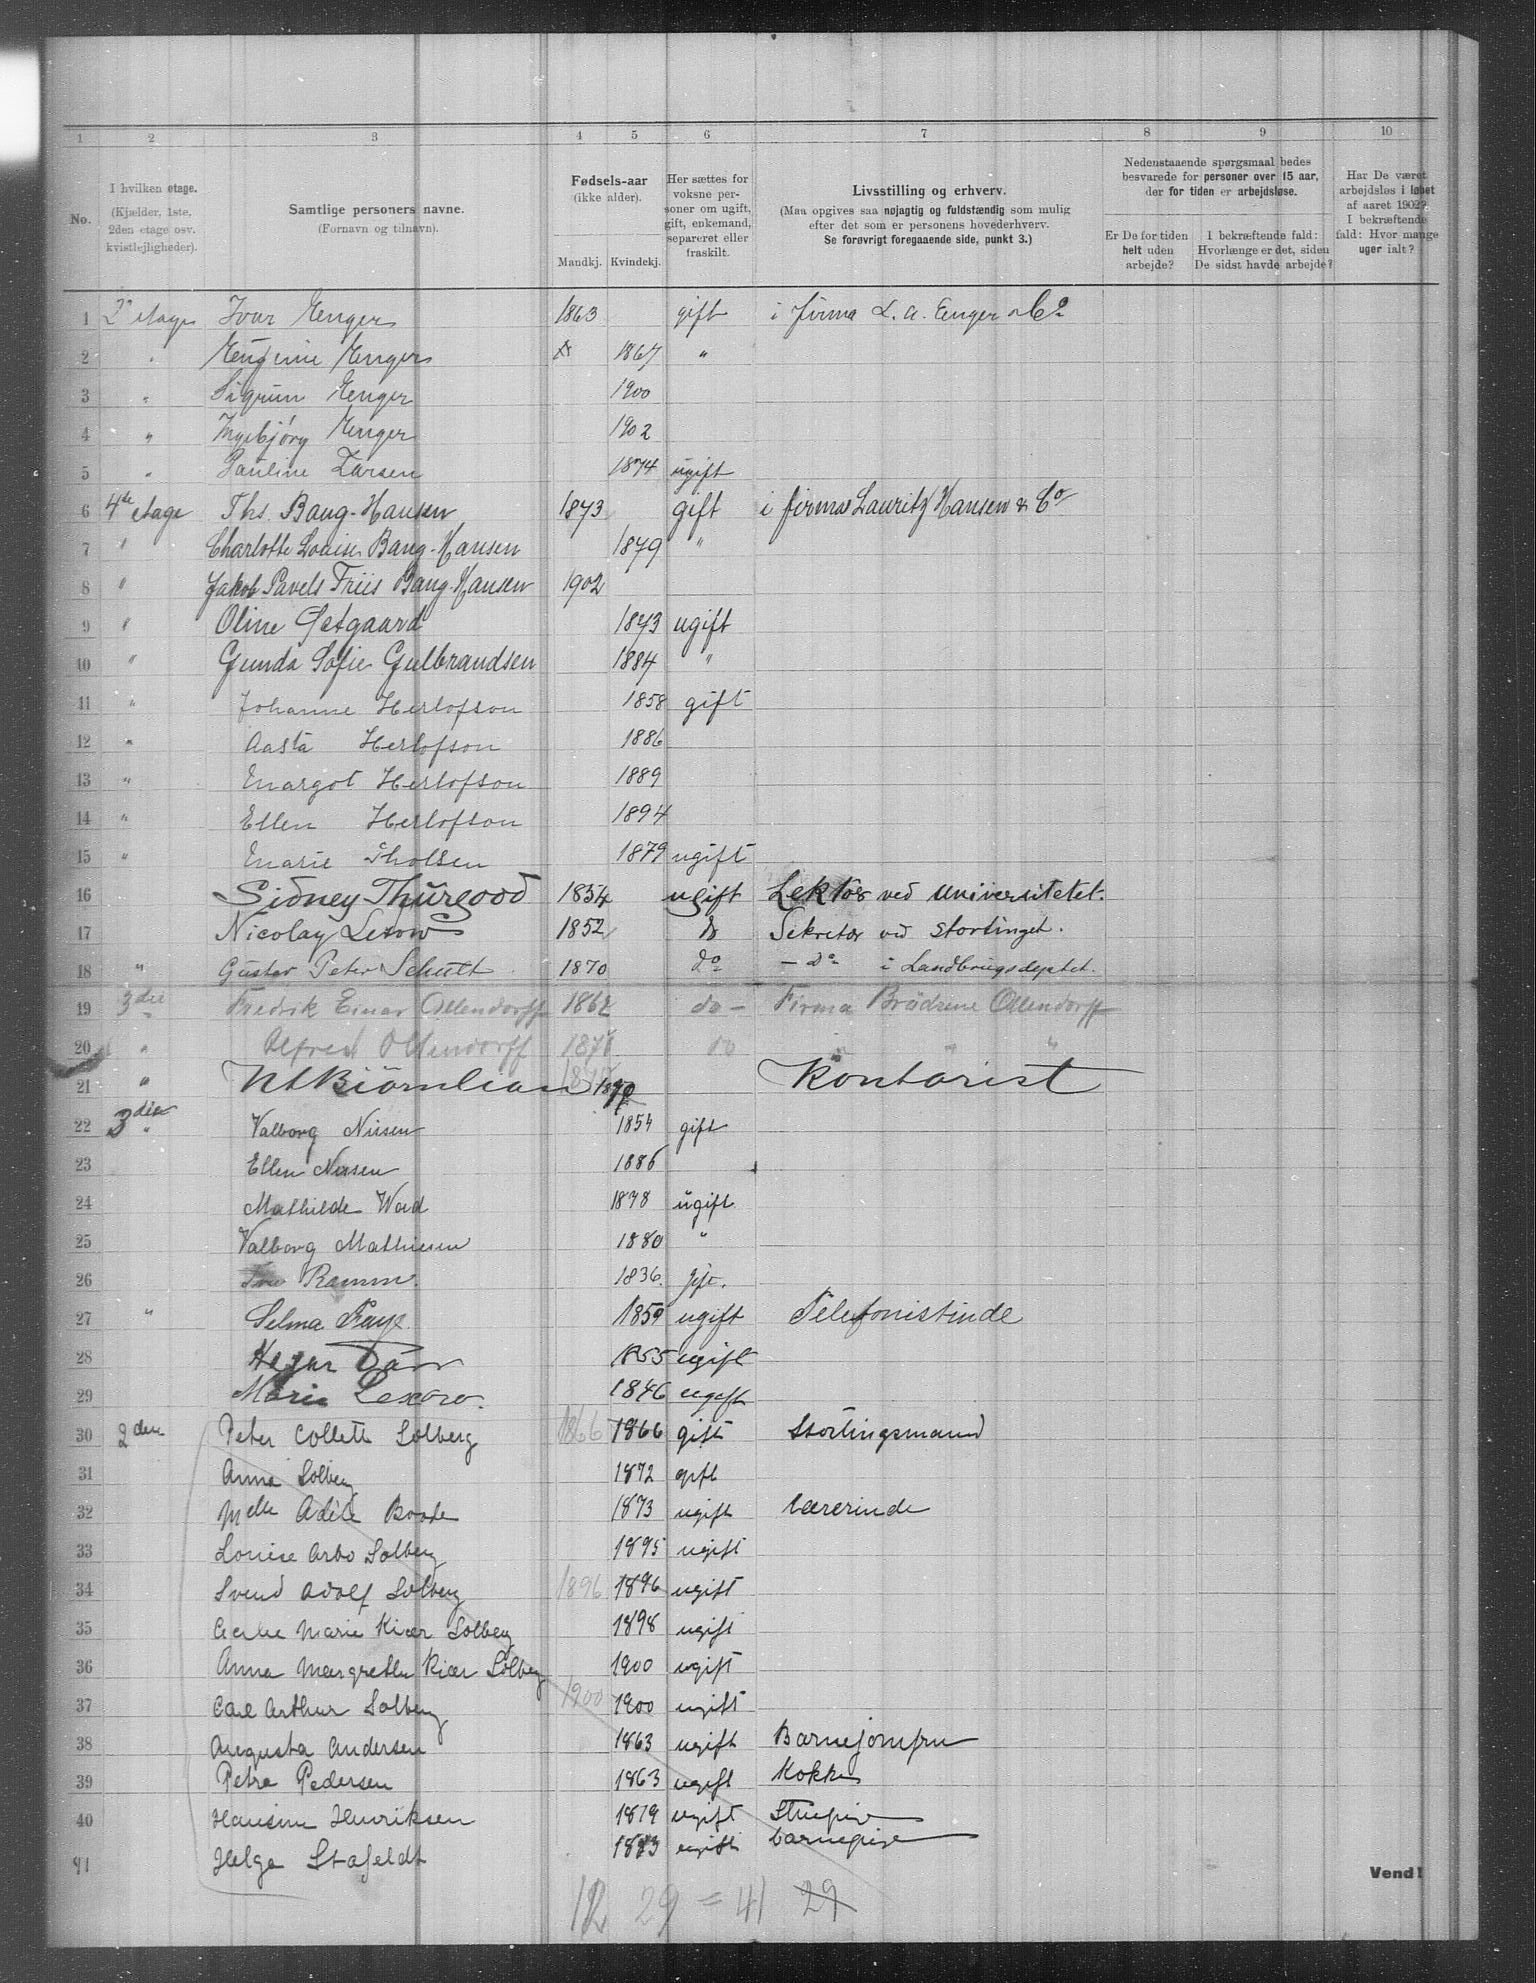 1 2 3 4 5 6 7 8 9 10
No.
I hvilken etage.
(Kjælder, 1ste,
2den etage osv.
kvistlejligheder).
Samtlige personers navne.
(Fornavn og tilnavn).
Fødsels-aar
(ikke alder).
Mandkj. Kvindekj.
Her sættes for
voksne per-
soner om ugift,
gift, enkemand,
separeret eller
fraskilt.
Livsstilling og erhverv.
(Maa opgives saa nøjagtig og fuldstændig som mulig
efter det som er personens hovederhverv.
Se forøvrigt foregaaende side, punkt 3.)
Nedenstaaende spørgsmaal bedes
besvarede for personer over 15 aar,
der for tiden er arbejdsløse.
Er De for tiden
helt uden
arbejde?
I bekræftende fald:
Hvorlænge er det, siden
De sidst havde arbejde?
Har De været
arbejdsløs i løbet
af aaret 1902?
I bekræftende
fald: Hvor mange
uger ialt?
1 etage Ivar Enger 1863 gift i firma L. A. Enger & Co
2 " Eugenie Enger 1867 "
3 " Sigrun Enger 1900
4 " Ingebjørg Enger 1902
5 " Pauline Larsen 1874 ugift
6 4de etage Ths. Bang-Hansen 1873 gift i firma Lauritz Hansen & Co
7 " Charlotte Louise Bang-Hansen 1879 "
8 " Jakob Pavels Friis Bang-Hansen 1902
9 " Oline Østgaard 1873 ugift
10 " Gunda Sofie Gulbrandsen 1884 "
11 " Johanne Herlofson 1858 gift
12 " Aasta Herlofson 1886
13 " Margot Herlofson 1889
14 " Ellen Herlofson 1894
15 " Marie 1879 ugift
16 Sidney Thurgood 1854 ugift Lektor ved universitetet.
17 Nicolay Lexow 1852 do Sekretær ved stortinget.
18 " Gustav Peter Schutt 1870 do - do i Landbrugsdeptet.
19 3die Fredrik Einar Ollendorff 1867 do - Firma Brødrene Ollendorff
20 " Alfred Ollendorff 187 do " " "
21 " 1870 Kontorist
22 3die " Valborg Nissen 1854 gift
23 Ellen Nissen 1886
24 Mathilde 1878 ugift
25 Valborg Mathiesen 1880 "
26 Ramm. 1836. gift.
27 " Selma 1859 ugift Telefonistinde
28 1855 ugift
29 Marie Lexow. 1846 ugift
30 2den Peter Collett Solberg 1866 1866 gift Stortingsmand
31 Anna Solberg 1872 gift
32 Melle Adèle 1873 ugift Lærerinde
33 Louise Arbo Solberg 1895 ugift
34 Svend Adolf Solberg 1896 1896 ugift
35 Cecilie Marie Kiær Solberg 1898 ugift
36 Anna Margrethe Kiær Solberg 1900 ugift
37 Carl Arthur Solberg 1900 1900 ugift
38 Augusta Andersen 1863 ugift Barnejomfru
39 Petra Pedersen 1863 ugift Kokke
40 Hansine Henriksen 1879 ugift Stuepige
41 Helga Stafeldt 1883 ugift barnepige
Vend!
12 29 = 41 29